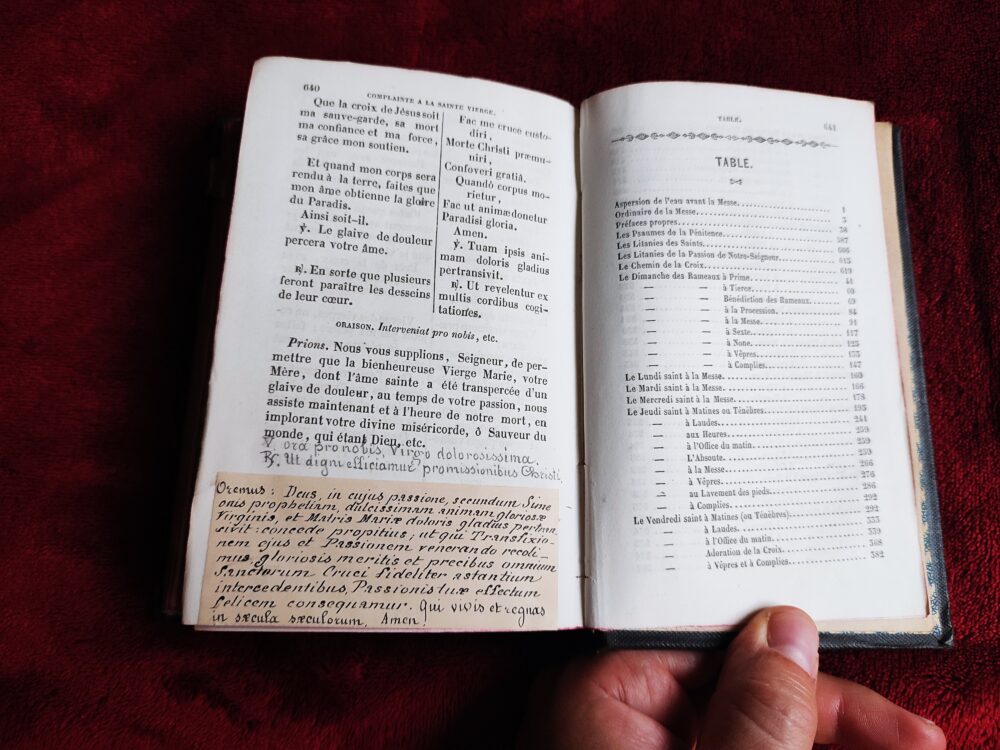 640
COMPLAINTE A LA SAINTE VIERGE.
Que la croix de Jésus soit
ma sauve-garde, sa mort
ma confiance et ma force,
sa grâce mon soutien.
Et quand mon corps sera
rendu à la terre, faites que
mon âme obtienne la gloire
du Paradis.
Ainsi soit-il.
℣. Le glaive de douleur
percera votre âme.
℟. En sorte que plusieurs
feront paraître les desseins
de leur cœur.
Fac me cruce custo-
diri,
Morte Christi præmu-
niri,
Confoveri gratiâ.
Quandò corpus mo-
rietur,
Fac ut animæ donetur
Paradisi gloria.
Amen.
℣. Tuam ipsis ani-
mam doloris gladius
pertransivit.
℟. Ut revelentur ex
multis cordibus cogi-
tationes.
ORAISON. Interveniat pro nobis, etc.
Prions. Nous vous supplions, Seigneur, de per-
mettre que la bienheureuse Vierge Marie, votre
Mère, dont l'âme sainte a été transpercée d'un
glaive de douleur, au temps de votre passion, nous
assiste maintenant et à l'heure de notre mort, en
implorant votre divine miséricorde, ô Sauveur du
monde, qui étant Dieu, etc.
℣. ora pro nobis, Virgo dolorosissima.
℟. Ut digni efficiamur promissionibus Christi.
Oremus : Deus, in cujus passione, secundum Sime
onis prophetiam, dulcissimam animam gloriosæ
Virginis, et Matris Mariæ doloris gladius pertran
sivit : concede propitius ; ut qui Transfixio-
nem ejus et Passionem venerando recoli-
mus, gloriosis meritis et precibus omnium
Sanctorum Cruci fideliter astantium
intercedentibus, Passionis tuæ effectum
felicem consequamur. Qui vivis et regnas
in sæcula sæculorum, Amen.
TABLE. 641
TABLE.
Aspersion de l'eau avant la Messe 1
Ordinaire de la Messe 3
Préfaces propres 38
Les Psaumes de la Pénitence 587
Les Litanies des Saints 606
Les Litanies de la Passion de Notre-Seigneur 615
Le Chemin de la Croix 619
Le Dimanche des Rameaux à Prime 41
— — à Tierce 60
— — Bénédiction des Rameaux 69
— — à la Procession 84
— — à la Messe 91
— — à Sexte 117
— — à None 125
— — à Vêpres 133
— — à Complies 147
Le Lundi saint à la Messe 160
Le Mardi saint à la Messe 166
Le Mercredi saint à la Messe 178
Le Jeudi saint à Matines ou Ténèbres 195
— à Laudes 241
— aux Heures 259
— à l'Office du matin 259
— L'Absoute 259
— à la Messe 266
— à Vêpres 276
— au Lavement des pieds 286
— à Complies 292
Le Vendredi saint à Matines (ou Ténèbres) 292
— à Laudes 333
— à l'Office du matin 339
— Adoration de la Croix 368
— à Vêpres et à Complies 382